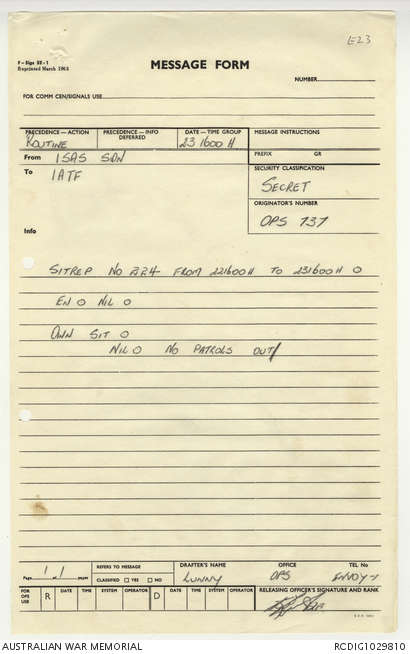 E23
F-Sigs 52-1
Reprinted March 1965
MESSAGE FORM
NUMBER
FOR COMM CEN/SIGNALS USE
PRECEDENCE—ACTION
PRECEDENCE—INFO DEFERRED
DATE—TIME GROUP
MESSAGE INSTRUCTIONS
ROUTINE
231600H
From 1SAS SQN
PREFIX GR
To 1ATF
SECURITY CLASSIFICATION
SECRET
ORIGINATOR'S NUMBER
OPS 737
Info
SITREP No FROM 221600H TO 231600H O
EN O NIL O
OWN SIT O
NIL O NO PATROLS OUT/
Page 1 of 1 pages
REFERS TO MESSAGE
CLASSIFIED YES NO
DRAFTER'S NAME
LUNNY
OFFICE
OPS
TEL No
ENVOY-1
FOR OPS USE
R DATE TIME SYSTEM OPERATOR D DATE TIME SYSTEM OPERATOR
RELEASING OFFICER'S SIGNATURE AND RANK
AUSTRALIAN WAR MEMORIAL
RCDIG1029810